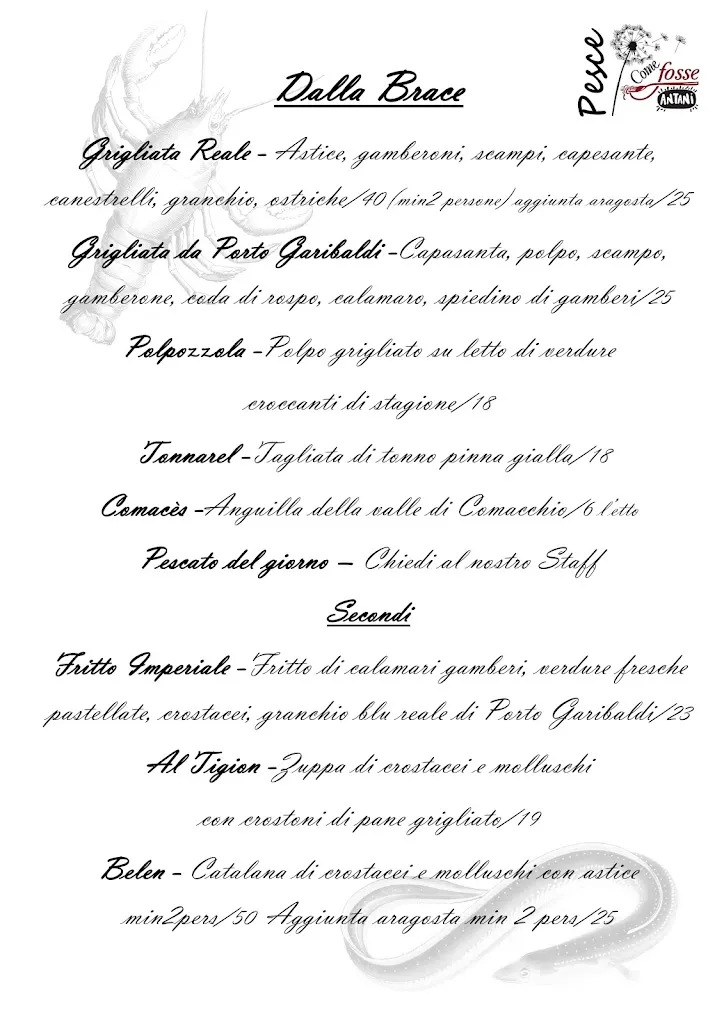 Pesce
Come fosse
ANTANI
Dalla Brace
Grigliata Reale - Astice, gamberoni, scampi, capesante,
canestrelli, granchio, ostriche/40 (min2 persone) aggiunta aragosta/25
Grigliata da Porto Garibaldi -Capasanta, polpo, scampo,
gamberone, coda di rospo, calamaro, spiedino di gamberi/25
Polpozzola -Polpo grigliato su letto di verdure
croccanti di stagione/18
Tonnarel -Tagliata di tonno pinna gialla/18
Comacès -Anguilla della valle di Comacchio/6 l'etto
Pescato del giorno – Chiedi al nostro Staff
Secondi
Fritto Imperiale -Fritto di calamari gamberi, verdure fresche
pastellate, crostacei, granchio blu reale di Porto Garibaldi/23
Al Tigion -Zuppa di crostacei e molluschi
con crostoni di pane grigliato/19
Belen - Catalana di crostacei e molluschi con astice
min2pers/50 Aggiunta aragosta min 2 pers/25